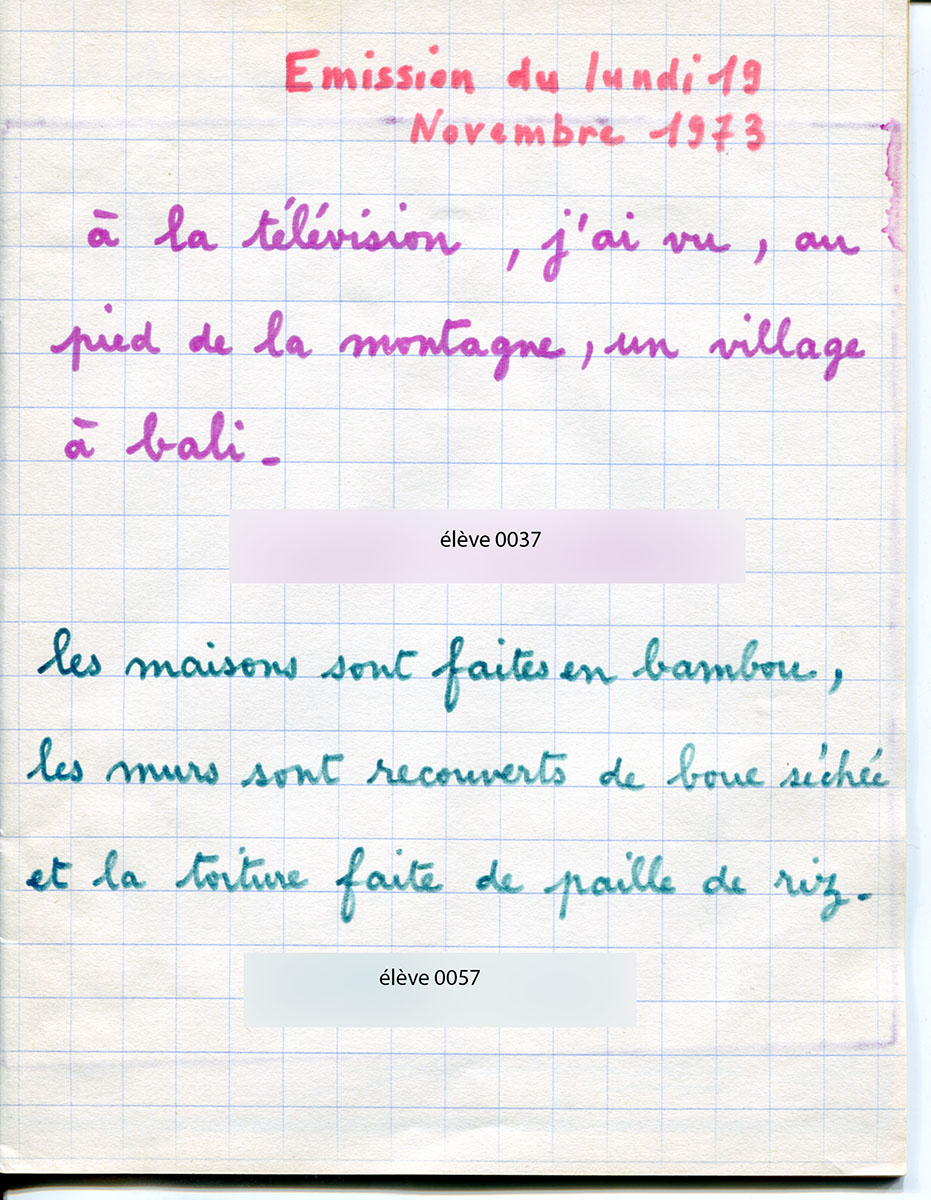 Emission du lundi 19
Novembre 1973
à la télévision, j'ai vu, au
pied de la montagne, un village
à bali_
élève 0037
les maisons sont faites en bambou,
les murs sont recouverts de boue séchée
et la toiture faite de paille de riz.
élève 0057